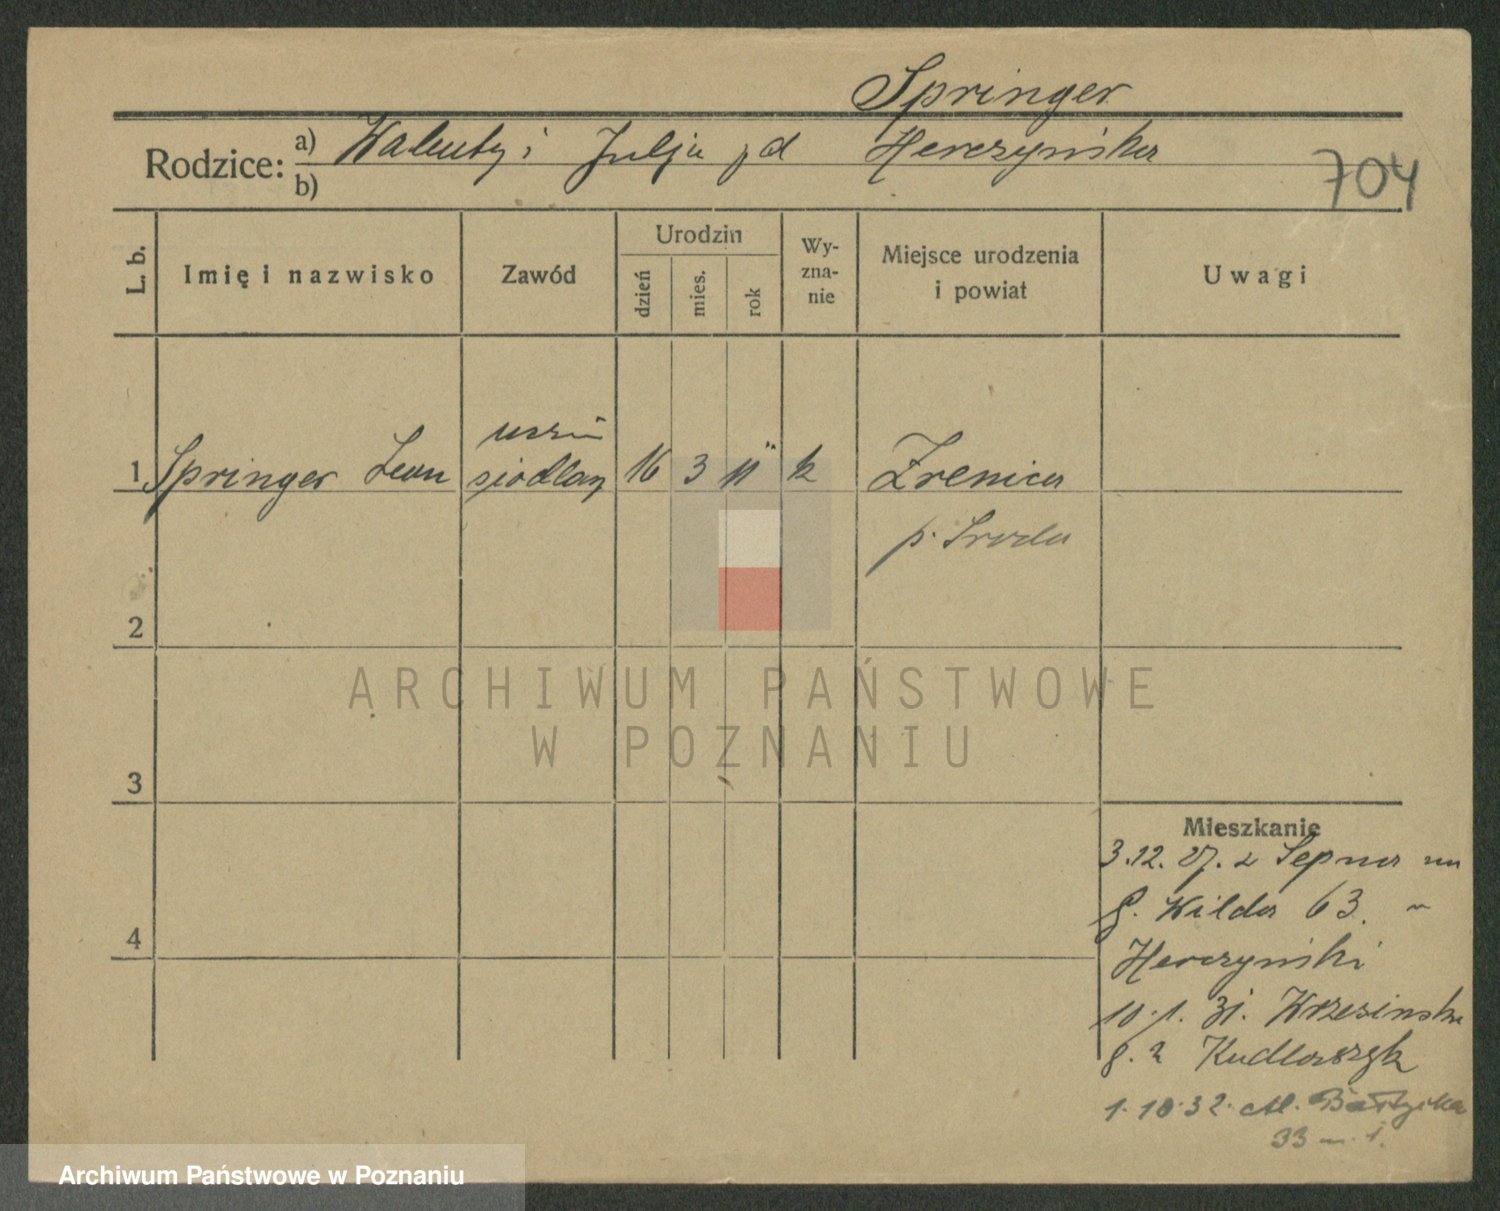 Springer
Rodzice: a) Walenty i Julja z d Herczyńska
b)
704
L. b.
Imię i nazwisko
Zawód
Urodzin
dzień
mies.
rok
Wy-
zna-
nie
Miejsce urodzenia
i powiat
Uwagi
1 Springer Leon
uczeń
siodlarz
16 3 11 k
Zrenica
p. Sroda
2
3
4
ARCHIWUM PAŃSTWOWE
W POZNANIU
Mieszkanie
3.12.27. z Sepna na
g. Wilda 63.
Herczyński
10.1.31. Wrzesinska
Kudlaszyk
1.10.32. M. Bałtycka
33 m. 1.
Archiwum Państwowe w Poznaniu